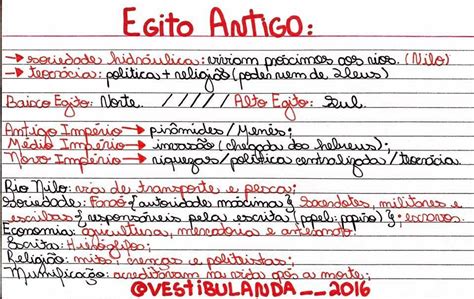 EGITO ANTIGO:
→ sociedade hidráulica: viviam próximos aos rios. (Nilo)
→ teocrácia: política + religião (poder vem de Deus)
Baixo Egito: Norte. / / / / / Alto Egito: Sul.
Antigo Império → pirâmides/Menés;
Médio Império → invasão (chegada dos hebreus);
Novo Império → riquezas/política centralizada/teocrácia.
Rio Nilo: via de transporte e pesca;
Sociedade: Faraó {autoridade máxima} Sacerdotes, militares e
escribas {responsáveis pela escrita (papel: papiro)}; escravos.
Economia: agricultura, mercadoria e artesanato.
Escrita: Hieróglifos;
Religião: mitos, crenças e politeístas;
Mumificação: acreditavam na vida após a morte;
@VESTIBULANDA__2016